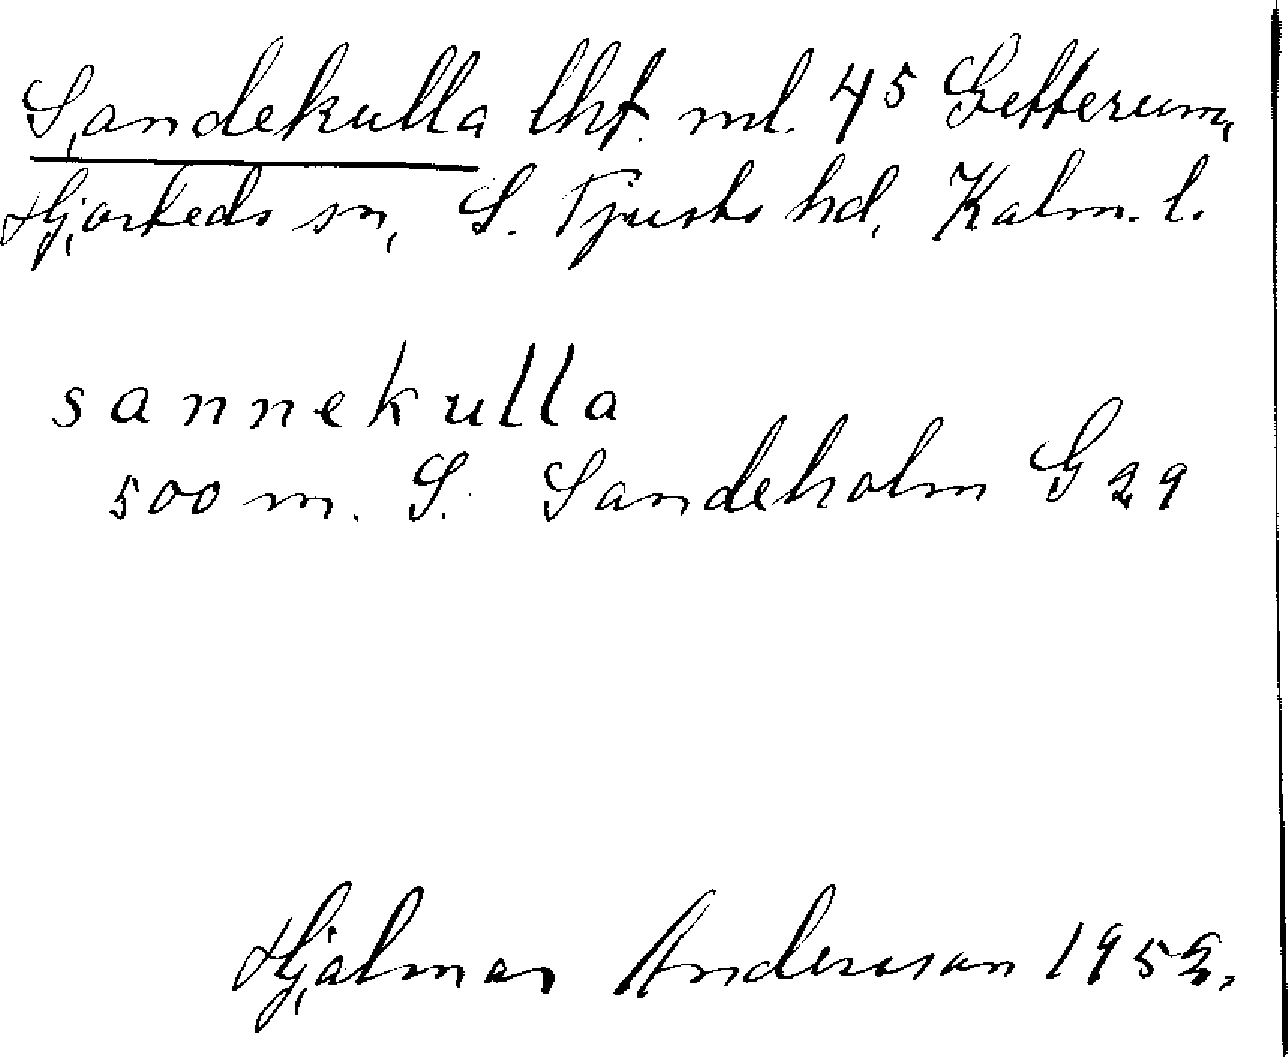 Sandekulla lht. ml. 45 Getterum,
Hjorteds sn, S. Tjusts hd, Kalm. l.
sannekulla
500 m. S. Sandeholm G 29
Hjalmar Andersson